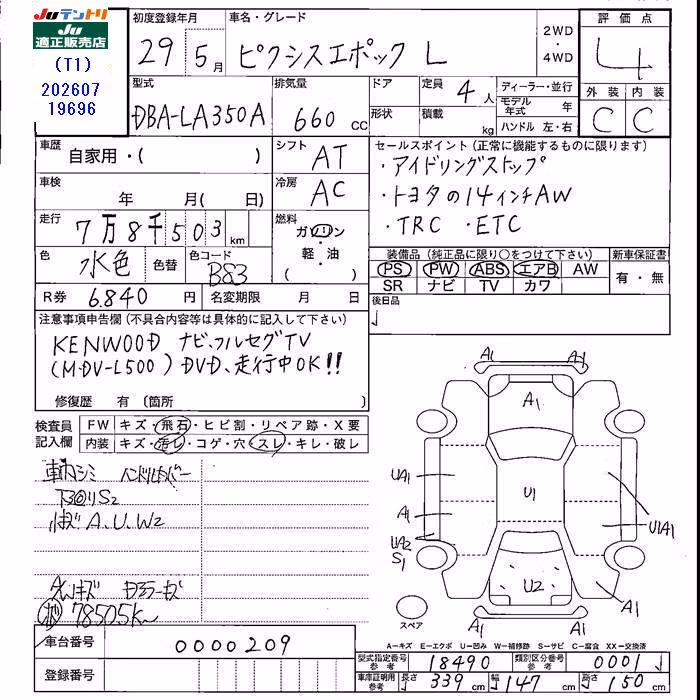 Juテントリ
Ju
適正販売店
(T1)
202607
19696
初度登録年月
29年 5月
車名・グレード
ピクシスエポック L
2WD
・
4WD
評価点
4
外装 内装
C C
型式
DBA-LA350A
排気量
660 CC
ドア
形状
定員
4人
積載
kg
ディーラー・並行
モデル年式 年
ハンドル 左・右
車歴
自家用・( )
シフト
AT
セールスポイント(正常に機能するものに限ります)
・アイドリングストップ
・トヨタの14インチAW
・TRC ・ETC
車検
年 月( 日)
冷房
AC
走行
7万8千503km
燃料
ガソリン
・
軽・油
( )
色
水色
色替
色コード
B83
装備品(純正品に限り○をつけて下さい)
PS PW ABS エアB AW
SR ナビ TV カワ
新車保証書
有・無
R券 6.840円
名変期限 月 日
後日品
注意事項申告欄(不具合内容等は具体的に記入して下さい)
KENWOOD ナビ、フルセグTV
(MDV-L500) DVD、走行中OK!!
修復歴 有(箇所 )
検査員
記入欄
FW キズ・飛石・ヒビ割・リペア跡・X要
内装 キズ・汚レ・コゲ・穴・スレ・キレ・破レ
車内シミ
S2
A、U、W2
78505k
A1 A1
A1
UA1
U1
A1
U1A1
UA2
S1
U2
A1
A1
A1
スペア
A=キズ E=エクボ U=凹み W=補修跡 S=サビ C=腐食 XX=交換済
車台番号
0000209
登録番号
型式指定番号
参考
18490
類別区分番号
参考
0001
車庫証明用
参考
長さ 339cm 幅 147cm 高さ 150cm